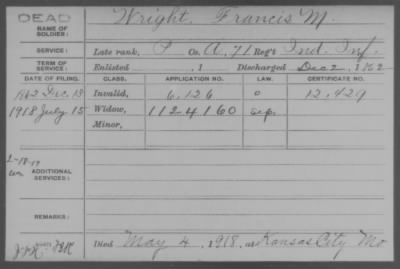 DEAD
NAME OF SOLDIER: Wright, Francis M.
SERVICE: Late rank, P Co. A, 71 Reg't Ind. Inf.
TERM OF SERVICE: Enlisted , 1 Discharged Dec 2, 1862
DATE OF FILING. CLASS. APPLICATION NO. LAW. CERTIFICATE NO.
1862 Dec. 13 Invalid, 6,126 C 12,429
1918 July 15 Widow, 1124160 sep.
Minor,
ADDITIONAL SERVICES:
REMARKS:
Died May 4, 1918, at Kansas City Mo